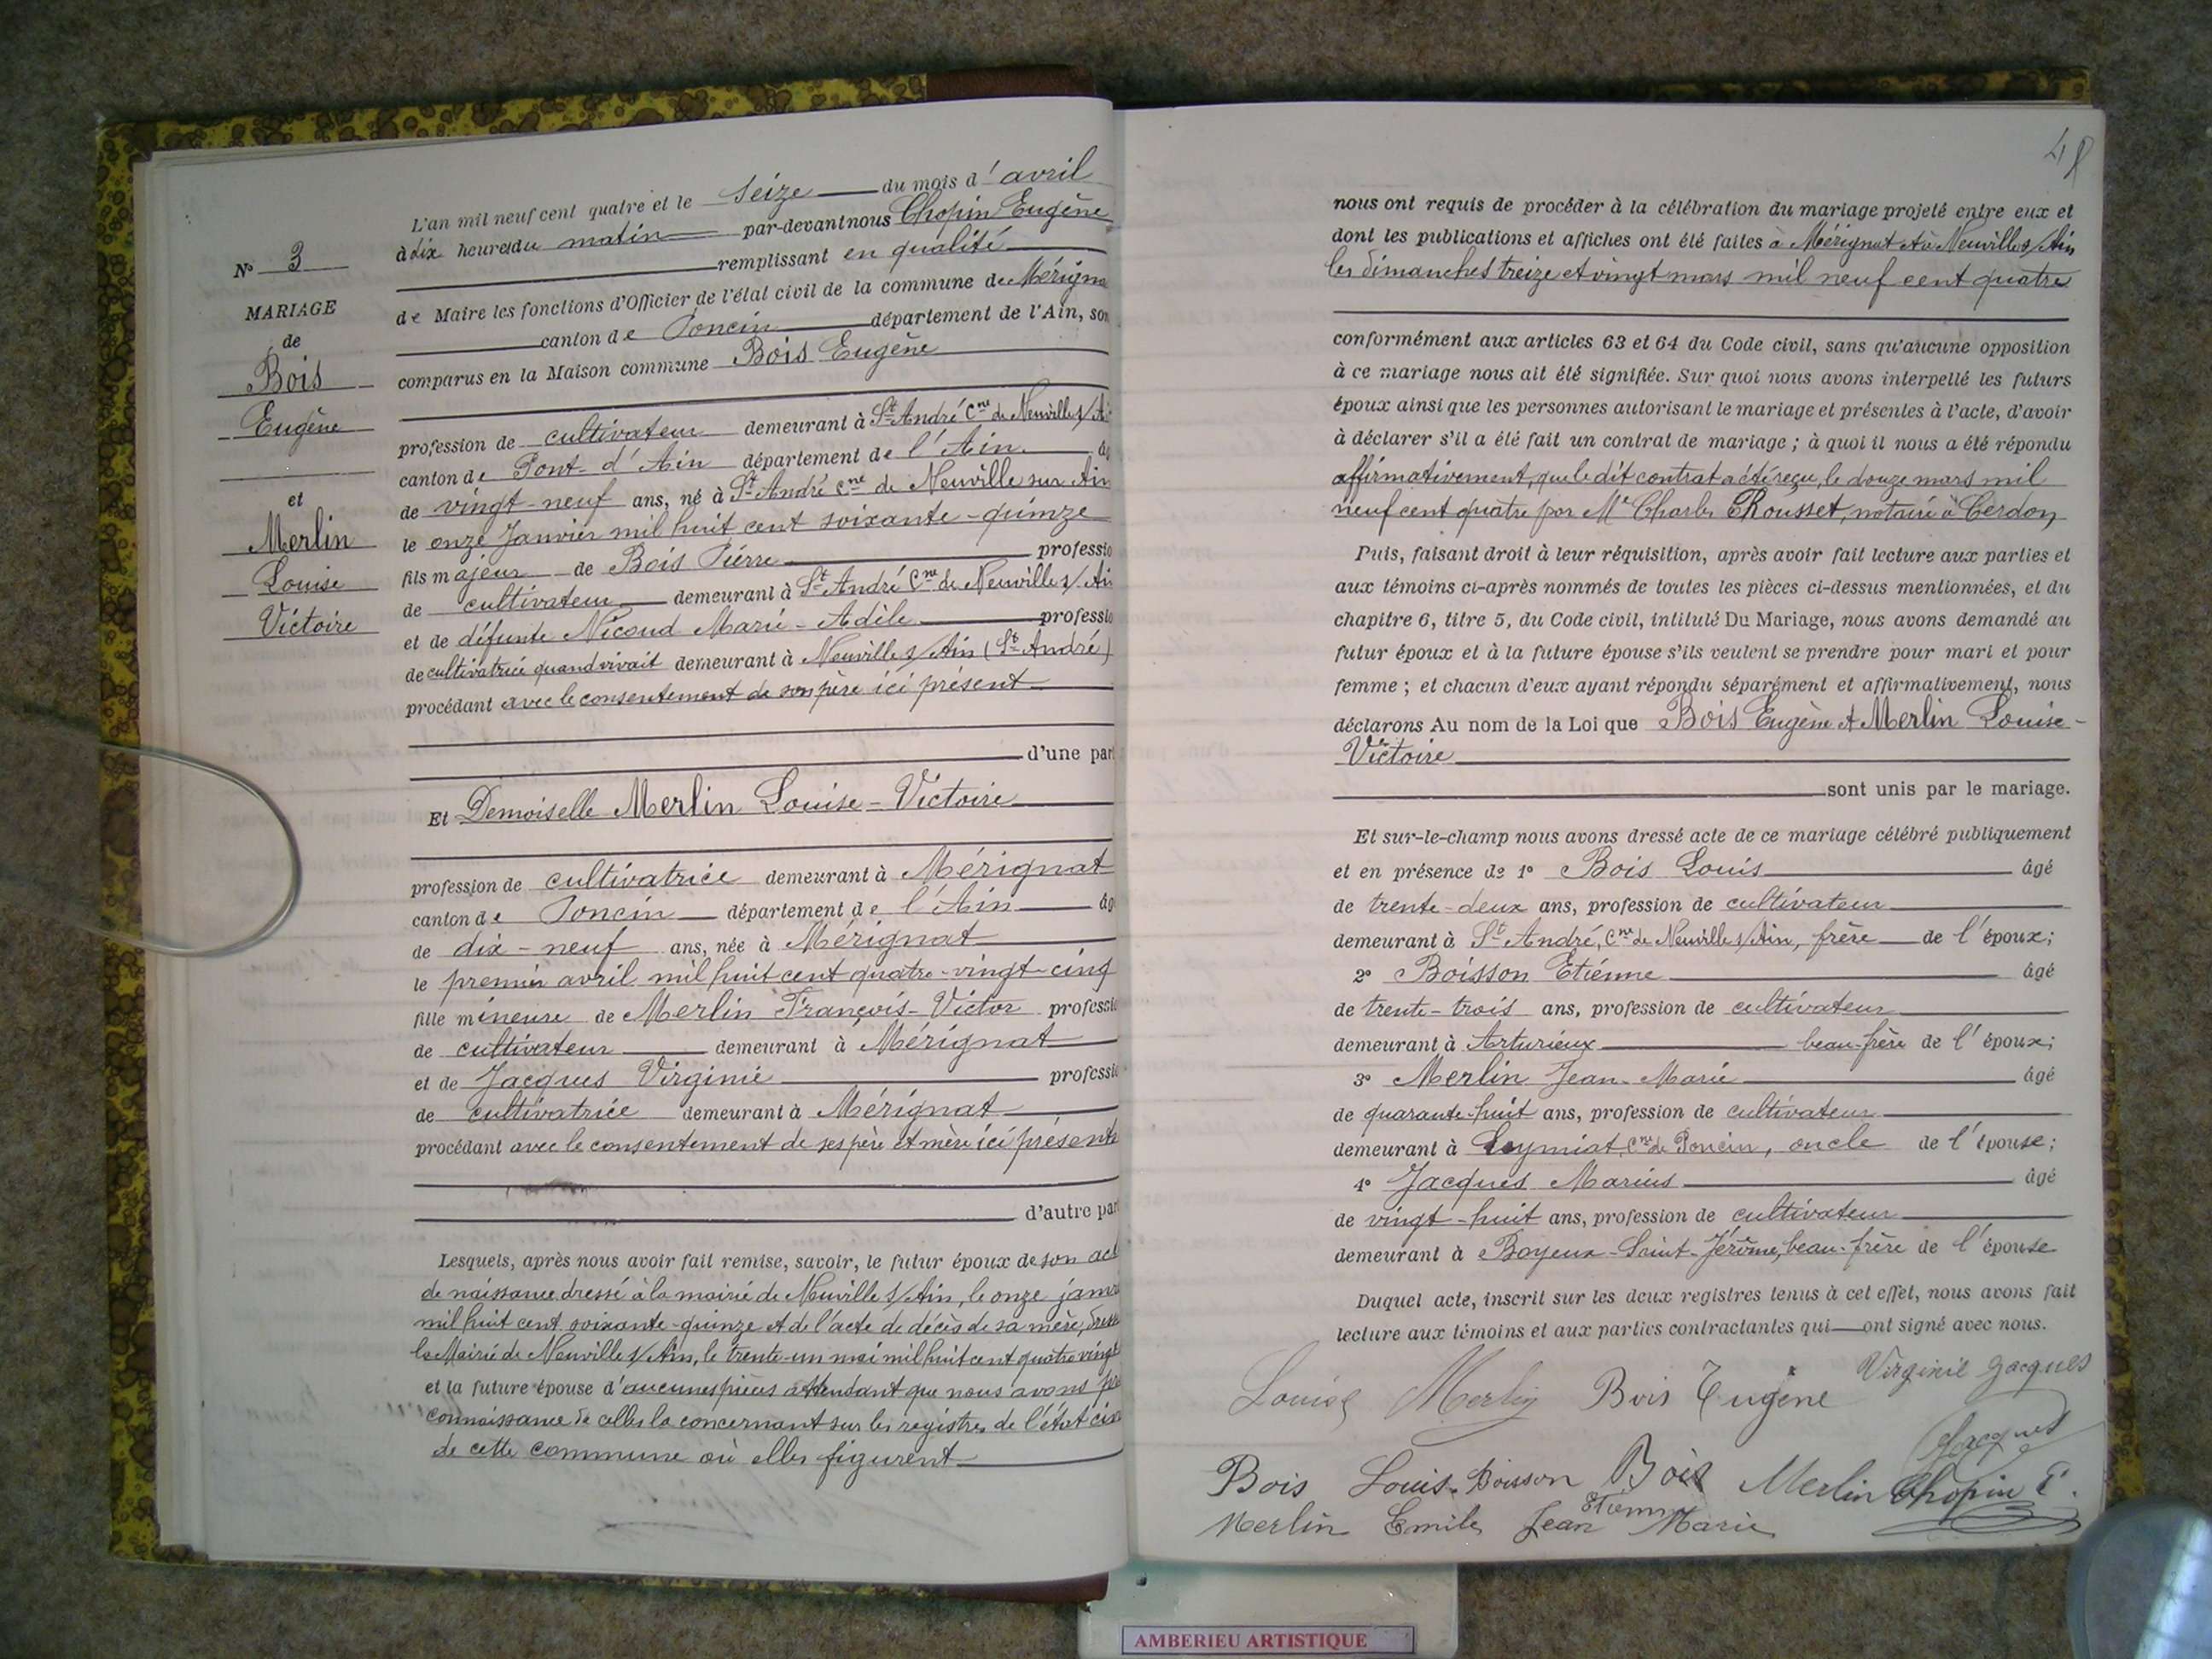 N° 3
MARIAGE
de
Bois
Eugène
et
Merlin
Louise
Victoire
L'an mil neuf cent quatre et le seize du mois d'avril
à dix heures du matin par-devant nous Chopin Eugène
remplissant en qualité
de Maire les fonctions d'Officier de l'état civil de la commune de Mérigna
canton de Poncin département de l'Ain, son
comparus en la Maison commune Bois Eugène
profession de cultivateur demeurant à St André Cne de Neuville s/Ai
canton de Pont-d'Ain département de l'Ain. âg
de vingt-neuf ans, né à St André Cne de Neuville sur Ain
le onze Janvier mil huit cent soixante-quinze
fils majeur de Bois Pierre professio
de cultivateur demeurant à St André Cne de Neuville s/Ain
et de défunte Nicoud Marie-Adèle professio
de cultivatrice quand vivait demeurant à Neuville s/Ain (St André)
procédant avec le consentement de son père ici présent
d'une part
Et Demoiselle Merlin Louise-Victoire
profession de cultivatrice demeurant à Mérignat
canton de Poncin département de l'Ain âg
de dix-neuf ans, née à Mérignat
le premier avril mil huit cent quatre-vingt-cinq
fille mineure de Merlin François-Victor professio
de cultivateur demeurant à Mérignat
et de Jacques Virginie professio
de cultivatrice demeurant à Mérignat
procédant avec le consentement de ses père et mère ici présents
d'autre part
Lesquels, après nous avoir fait remise, savoir, le futur époux de son act
de naissance dressé à la mairie de Neuville s/Ain, le onze janvi
mil huit cent soixante-quinze et de l'acte de décès de sa mère, dressé
la Mairie de Neuville s/Ain, le trente-un mai mil huit cent quatre vingt
et la future épouse d'aucunes pièces attendant que nous avons pr
connaissance de celles la concernant sur les registres de l'état civi
de cette commune où elles figurent
48
nous ont requis de procéder à la célébration du mariage projeté entre eux et
dont les publications et affiches ont été faites à Mérignat et à Neuville s/Ain
les dimanches treize et vingt mars mil neuf cent quatre
conformément aux articles 63 et 64 du Code civil, sans qu'aucune opposition
à ce mariage nous ait été signifiée. Sur quoi nous avons interpellé les futurs
époux ainsi que les personnes autorisant le mariage et présentes à l'acte, d'avoir
à déclarer s'il a été fait un contrat de mariage ; à quoi il nous a été répondu
affirmativement, que le dit contrat a été reçu, le douze mars mil
neuf cent quatre par Me Charles Rousset, notaire à Cerdon
Puis, faisant droit à leur réquisition, après avoir fait lecture aux parties et
aux témoins ci-après nommés de toutes les pièces ci-dessus mentionnées, et du
chapitre 6, titre 5, du Code civil, intitulé Du Mariage, nous avons demandé au
futur époux et à la future épouse s'ils veulent se prendre pour mari et pour
femme ; et chacun d'eux ayant répondu séparément et affirmativement, nous
déclarons Au nom de la Loi que Bois Eugène et Merlin Louise-
Victoire
sont unis par le mariage.
Et sur-le-champ nous avons dressé acte de ce mariage célébré publiquement
et en présence de 1° Bois Louis âgé
de trente-deux ans, profession de cultivateur
demeurant à St André, Cne de Neuville s/Ain, frère de l'époux;
2° Boisson Etienne âgé
de trente-trois ans, profession de cultivateur
demeurant à Arturieux beau-frère de l'époux;
3° Merlin Jean-Marie âgé
de quarante-huit ans, profession de cultivateur
demeurant à Leymiat, Cne de Poncin, oncle de l'épouse;
4° Jacques Marius âgé
de vingt-huit ans, profession de cultivateur
demeurant à Boyeux-Saint-Jérôme, beau-frère de l'épouse
Duquel acte, inscrit sur les deux registres tenus à cet effet, nous avons fait
lecture aux témoins et aux parties contractantes qui ont signé avec nous.
Louise Merlin Bois Eugène Virginie Jacques
Jacques
Bois Louis. Boisson Bois Merlin Chopin E.
Etienne
Merlin Emile Jean Marie
AMBERIEU ARTISTIQUE